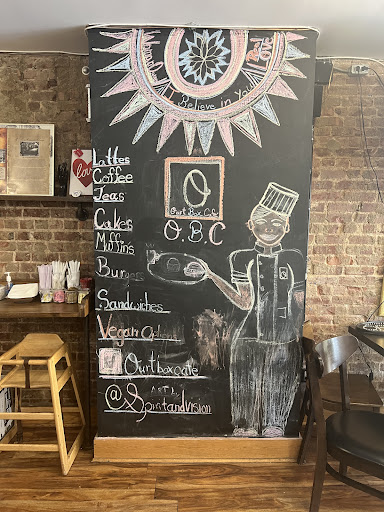 Believe in You
Love
Lattes
Coffee
Teas
Cakes
Muffins
Burgers
Sandwiches
Vegan
O
Ourt Box Cafe
O.B.C
Ourtboxcafe
@Spiritandvision
love